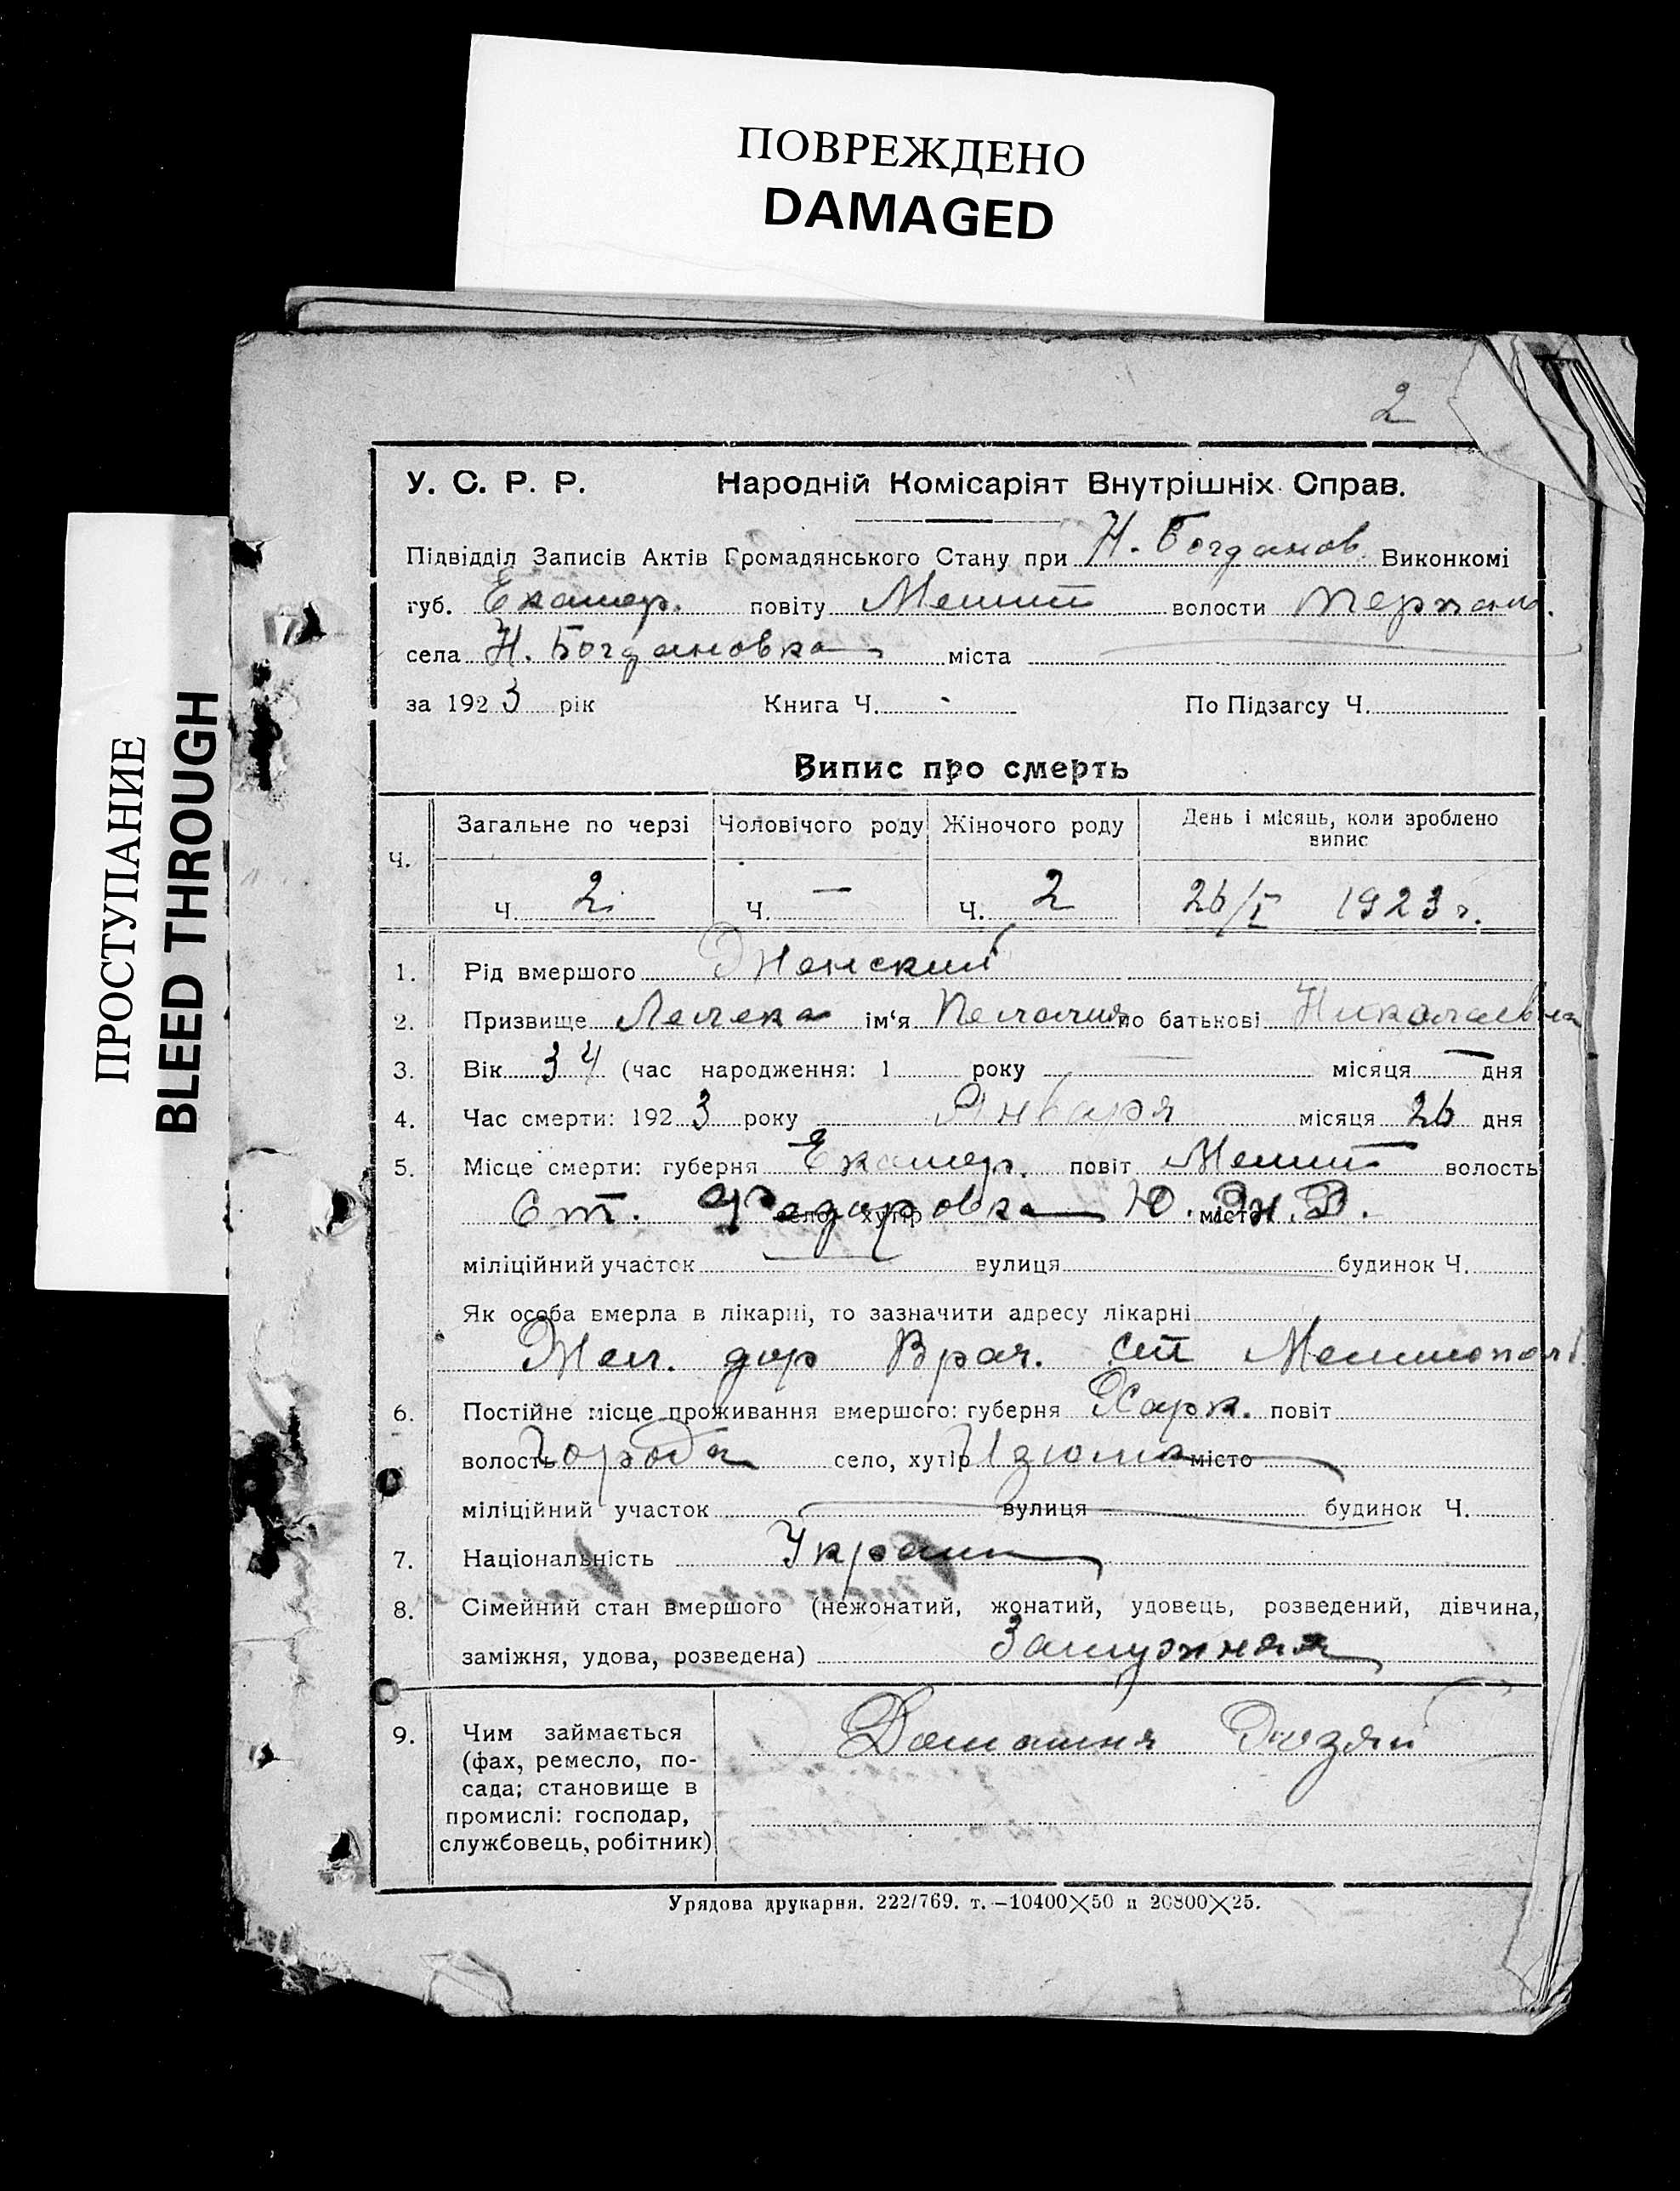 ПОВРЕЖДЕНО
DAMAGED
ПРОСТУПАНИЕ
BLEED THROUGH
2
У. С. Р. Р. Народній Комісаріят Внутрішніх Справ.
Підвідділ Записів Актів Громадянського Стану при Н. Богданов. Виконкомі
губ. Екатер. повіту Мелит волости Терпен.
села Н. Богдановка міста
за 1923 рік Книга Ч. По Підзагсу Ч.
Випис про смерть
Загальне по черзі Чоловічого роду Жіночого роду День і місяць, коли зроблено
випис
Ч.
Ч. 2 Ч. — Ч. 2 26/I 1923 г.
1. Рід вмершого Женский
2. Призвище ім‘я Пелагия по батькові Николаевна
3. Вік 34 (час народження: 1 року місяця дня
4. Час смерти: 1923 року Января місяця 26 дня
5. Місце смерти: губерня Екатер. повіт Мелит волость
Ст. Федоровка село, хутір Ю. Ж. Д. місто
міліційний участок вулиця будинок Ч.
Як особа вмерла в лікарні, то зазначити адресу лікарні
Жел. дор Врач. ст Мелитополь.
6. Постійне місце проживання вмершого: губерня Харк. повіт
волость города село, хутір Изюма місто
міліційний участок вулиця будинок Ч.
7. Національність Украин
8. Сімейний стан вмершого (нежонатий, жонатий, удовець, розведений, дівчина,
заміжня, удова, розведена) Замужняя
9. Чим займається Домашня Хозяй
(фах, ремесло, по-
сада; становище в
промислі: господар,
службовець, робітник)
Урядова друкарня. 222/769. т.—10400×50 и 20800×25.